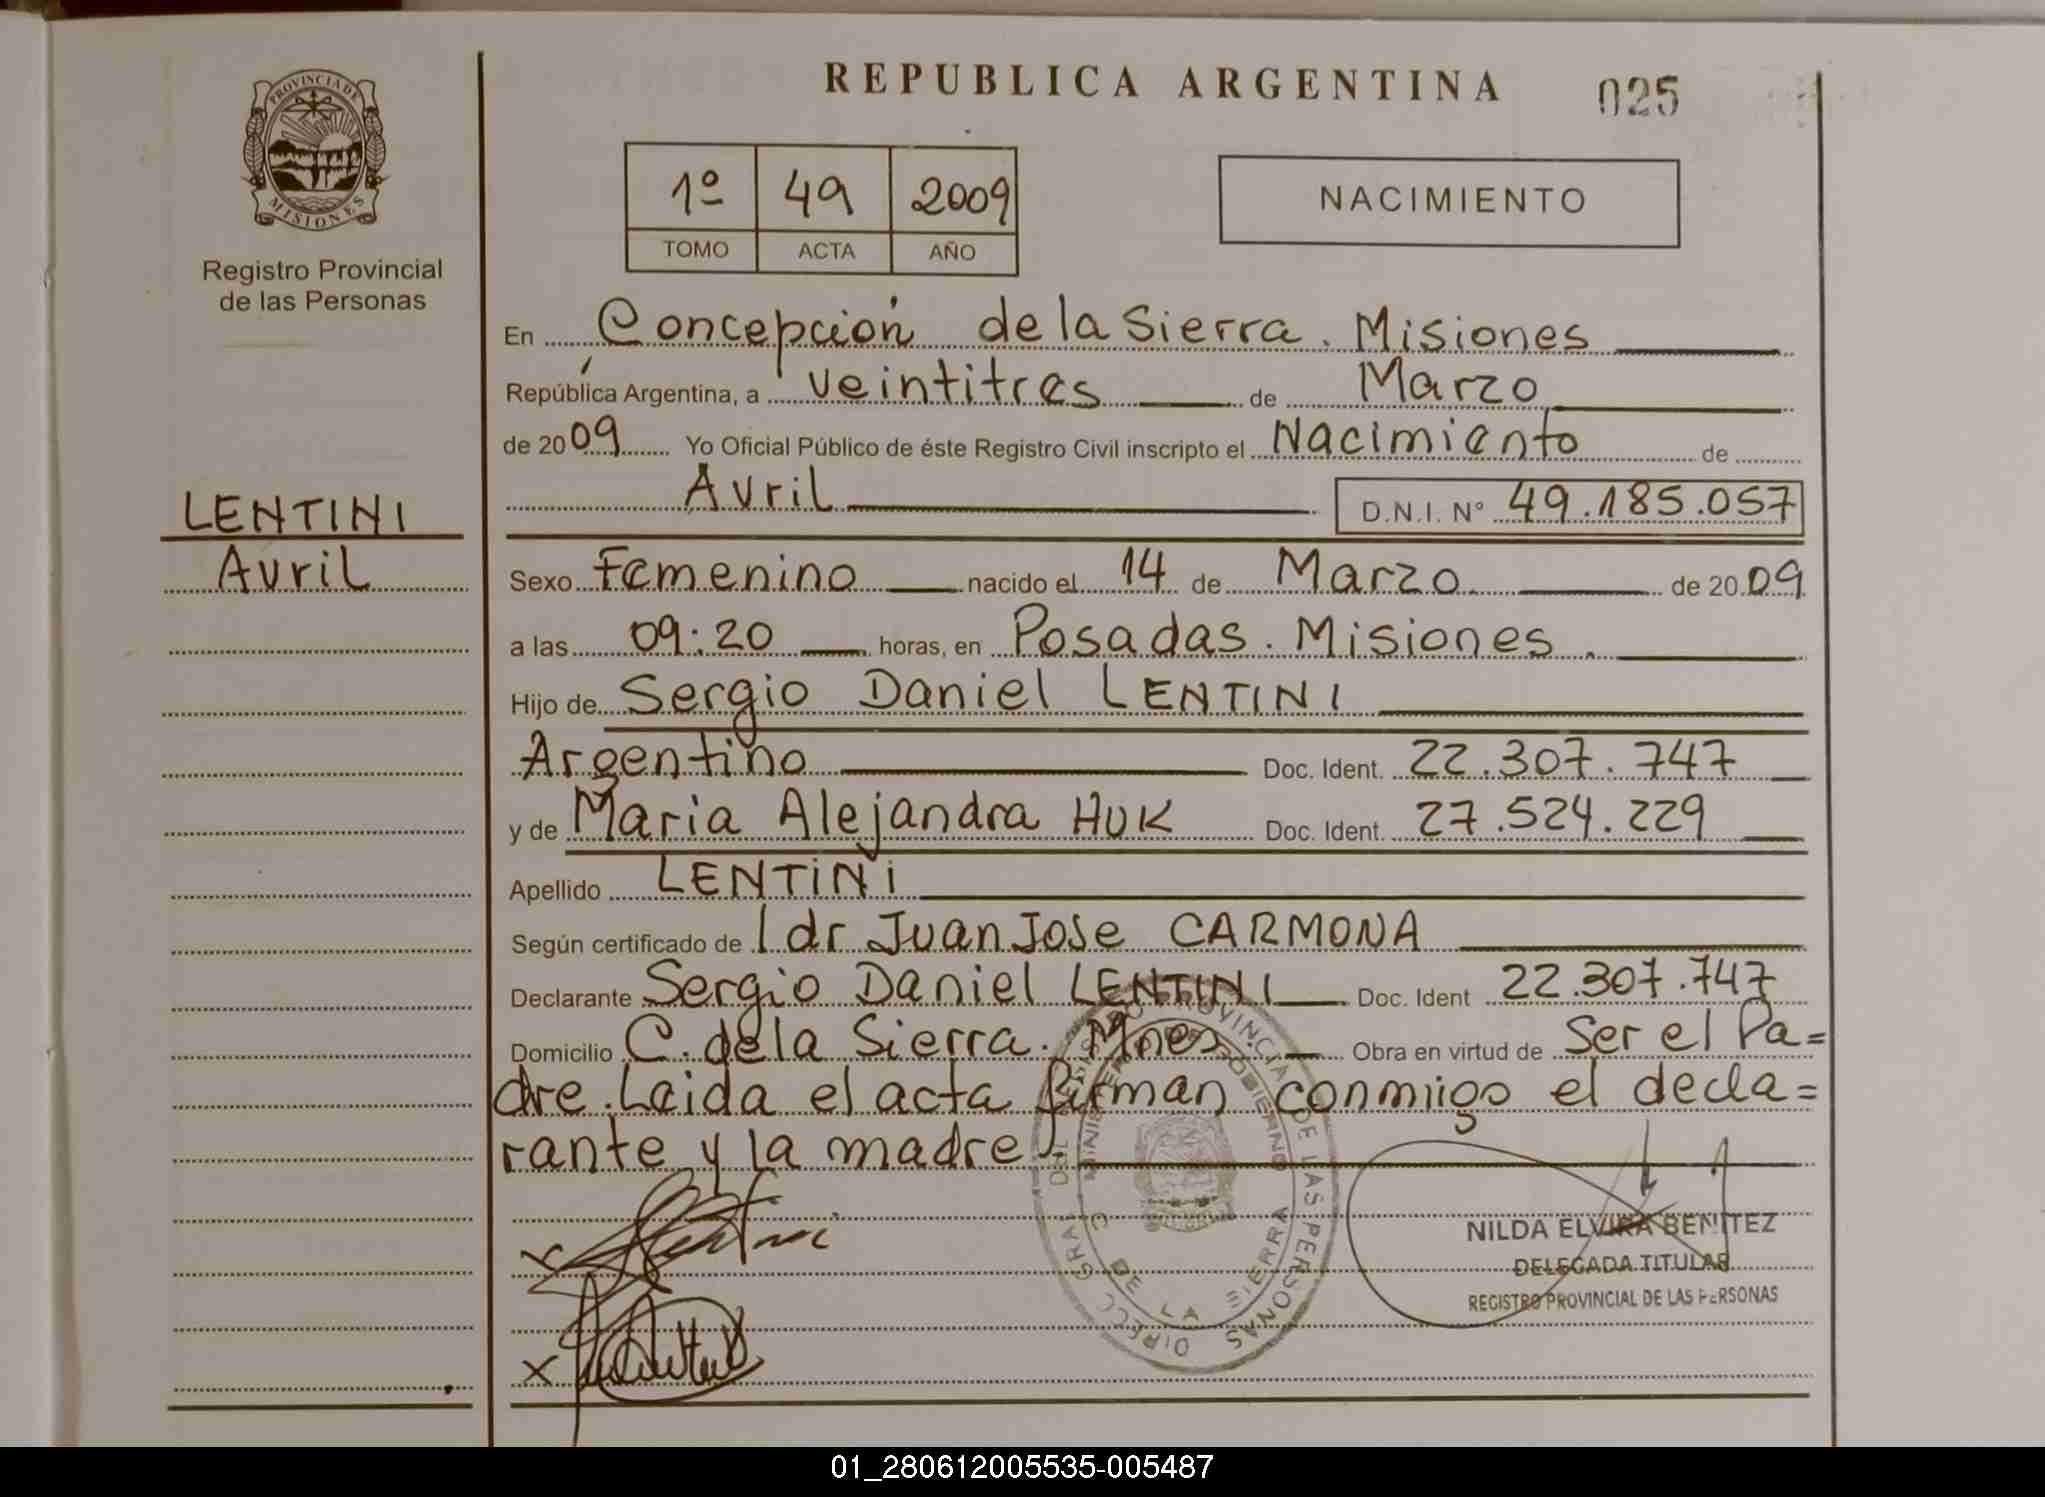 REPUBLICA ARGENTINA
025
PROVINCIA DE
MISIONES
Registro Provincial
de las Personas
1º 49 2009
TOMO ACTA AÑO
NACIMIENTO
En Concepción de la Sierra. Misiones
República Argentina, a veintitres de Marzo
de 2009 Yo Oficial Público de éste Registro Civil inscripto el Nacimiento de
Avril D.N.I. Nº 49.185.057
LENTINI
Avril
Sexo Femenino nacido el 14 de Marzo de 2009
a las 09:20 horas, en Posadas. Misiones.
Hijo de Sergio Daniel LENTINI
Argentino Doc. Ident. 22.307.747
y de Maria Alejandra HUK Doc. Ident. 27.524.229
Apellido LENTINI
Según certificado de l dr Juan Jose CARMONA
Declarante Sergio Daniel LENTINI Doc. Ident 22.307.747
Domicilio C. de la Sierra. Mnes. Obra en virtud de Ser el Pa=
dre. Leida el acta firman conmiigo el decla=
rante y la madre.
DIRECC GRAL DEL REGISTRO PROVINCIAL DE LAS PERSONAS
MINISTERIO DE GOBIERNO
C DE LA SIERRA
NILDA ELVIRA BENITEZ
DELEGADA TITULAR
REGISTRO PROVINCIAL DE LAS PERSONAS
01_280612005535-005487